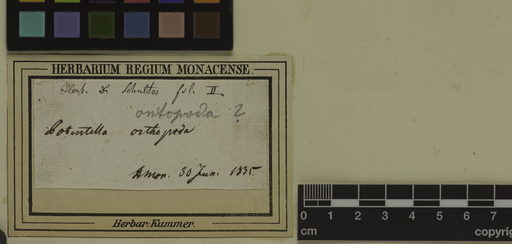 HERBARIUM REGIUM MONACENSE.
Herb. Schultes fil. II
ontopoda ?
Potentilla orthopoda
Amon. 30 Jun. 1835
Herbar. Kummer.
0 1 2 3 4 5 6 7
cm copyrig